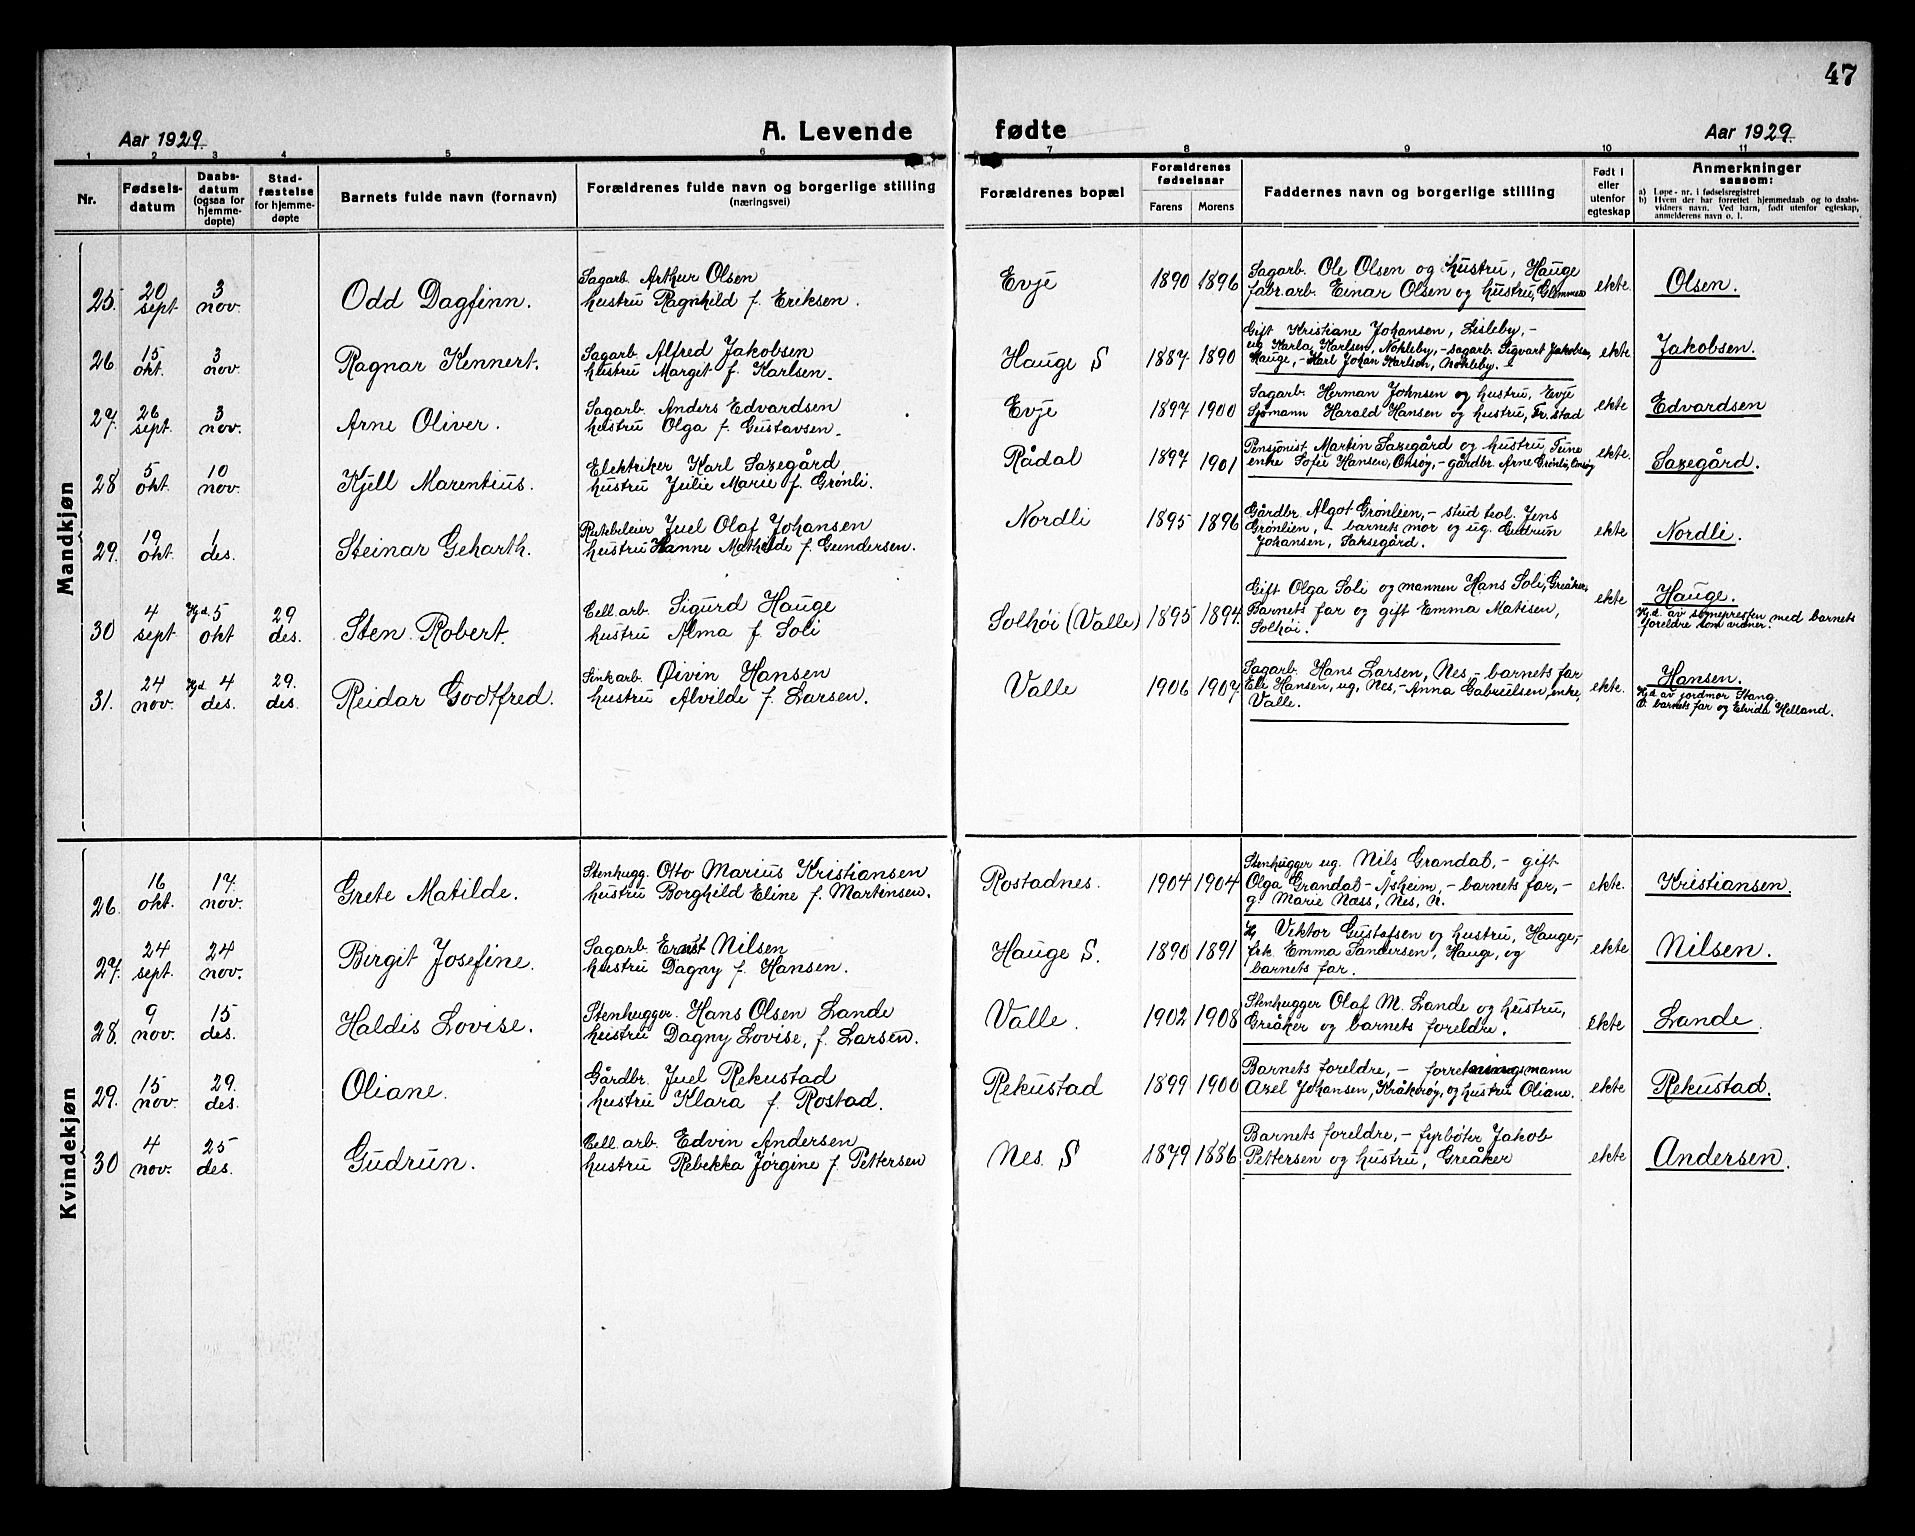 47
Aar 1929.
A. Levende fødte
Aar 1929.
1 2 3 4 5 6 7 8 9 10 11
Nr.
Fødsels-
datum
Daabs-
datum
(ogsaa for
hjemme-
døpte)
Stad-
fæstelse
for hjemme-
døpte
Barnets fulde navn (fornavn)
Forældrenes fulde navn og borgerlige stilling
(næringsvei)
Forældrenes bopæl
Forældrenes
fødselsaar
Farens Morens
Faddernes navn og borgerlige stilling
Født i
eller
utenfor
egteskap
Anmerkninger
saasom:
a) Løpe-nr. i fødselsregistret
b) Hvem der har forrettet hjemmedaab og to daabs-
vidners navn. Ved barn, født utenfor egteskap,
anmelderens navn o. l.
Mandkjøn
25. 20 sept 3 nov. Odd Dagfinn.
Sagarb. Arthur Olsen
hustru Ragnhild f. Eriksen.
Evje 1890 1896
Sagarb. Ole Olsen og hustru, Hauge
fabr.arb. Einar Olsen og hustru, Glemmen
ekte. Olsen.
26 15 okt. 3 nov. Ragnar Kennert.
Sagarb. Alfred Jakobsen
hustru Margit f. Karlsen.
Hauge S 1887 1890
Gift Kristiane Johansen, Lisleby, -
ug Karla Karlsen, Nokleby, - sagarb. Sigvart Jakobsen,
Hauge, - Karl Johan Karlsen, Nokleby.
ekte Jakobsen.
27. 26 sept. 3 nov. Arne Oliver.
Sagarb. Anders Edvardsen
hustru Olga f. Gustavsen.
Evje 1897 1900
Sagarb. Herman Johnsen og hustru, Evje
Sjømann Harald Hansen og hustru, Fr.stad
ekte Edvardsen
28 5 okt. 10 nov. Kjell Marentius.
Elektriker Karl Saxegård,
hustru Julie Marie f. Grønli.
Rådal 1897 1901
Pensjonist Martin Saxegård og hustru, Tune
enke Sofie Hansen, Onsøy, - gårdbr. Arne Grønli, Onsøy
ekte. Saxegård.
29. 19 okt 1 des. Steinar Geharth.
Rutebileier Juel Olaf Johansen
hustru Hanne Mathilde f. Gundersen.
Nordli 1895 1896
Gårdbr. Algot Grønlien, - stud teol. Jens
Grønlien, - barnets mor og ug. Gudrun
Johansen, Saksegård.
ekte Nordli.
30 4 sept Hjd. 5 okt 29 des. Sten Robert.
Cell. arb. Sigurd Hauge
hustru Alma f. Soli
Solhøi (Valle) 1895 1894.
Gift Olga Soli og mannen Hans Soli, Greåker,
Barnets far og gift Emma Matisen,
Solhøi.
ekte Hauge.
Hjd. av sognepresten med barnets
foreldre som vidner.
31. 24 nov. Hjd. 4 des. 29. des. Reidar Godtfred.
Sinkarb. Øivin Hansen
hustru Alvilde f. Larsen.
Valle 1906 1907
Sagarb. Hans Larsen, Nes, - barnets far
Eli Hansen, ug, Nes, - Anna Gabrielsen, enke,
Valle.
ekte. Hansen.
Hjd av jordmor Stang
V. barnets far og Elvida Helland.
Kvindekjøn
26. 16 okt. 17. nov. Grete Matilde.
Stenhugg. Otto Marius Kristiansen
hustru Borghild Eline f. Martinsen.
Rostadnes. 1904 1904
Stenhugger ug. Nils Grandal, - gift
Olga Grandal - Åsheim, - barnets far, -
g. Marie Næss, Nes, N.
ekte. Kristiansen.
27. 24 sept 24 nov. Birgit Josefine.
Sagarb. Ernst Nilsen
hustru Dagny f. Hansen.
Hauge S. 1890 1891
Viktor Gustafsen og hustru, Hauge, -
frk. Emma Sandersen, Hauge, og
barnets far.
ekte Nilsen.
28. 9 nov. 15 des. Haldis Lovise.
Stenhugger. Hans Olsen Lande
hustru Dagny Lovise, f. Larsen.
Valle. 1902 1908
Stenhugger Olaf M. Lande og hustru,
Greåker og barnets foreldre.
ekte Lande
29. 15 nov. 29. des. Oliane.
Gårdbr. Juel Rekustad
hustru Klara f. Rostad.
Rekustad 1899 1900
Barnets foreldre, - forretningsmann
Axel Johansen, Kråkerøy, og hustru Oliane.
ekte Rekustad.
30 4 nov. 25 des. Gudrun.
Cell. arb. Edvin Andersen
hustru Rebekka Jørgine f. Pettersen
Nes. S 1879 1886
Barnets foreldre, - fyrbøter Jakob
Pettersen og hustru, Greåker
ekte Andersen.